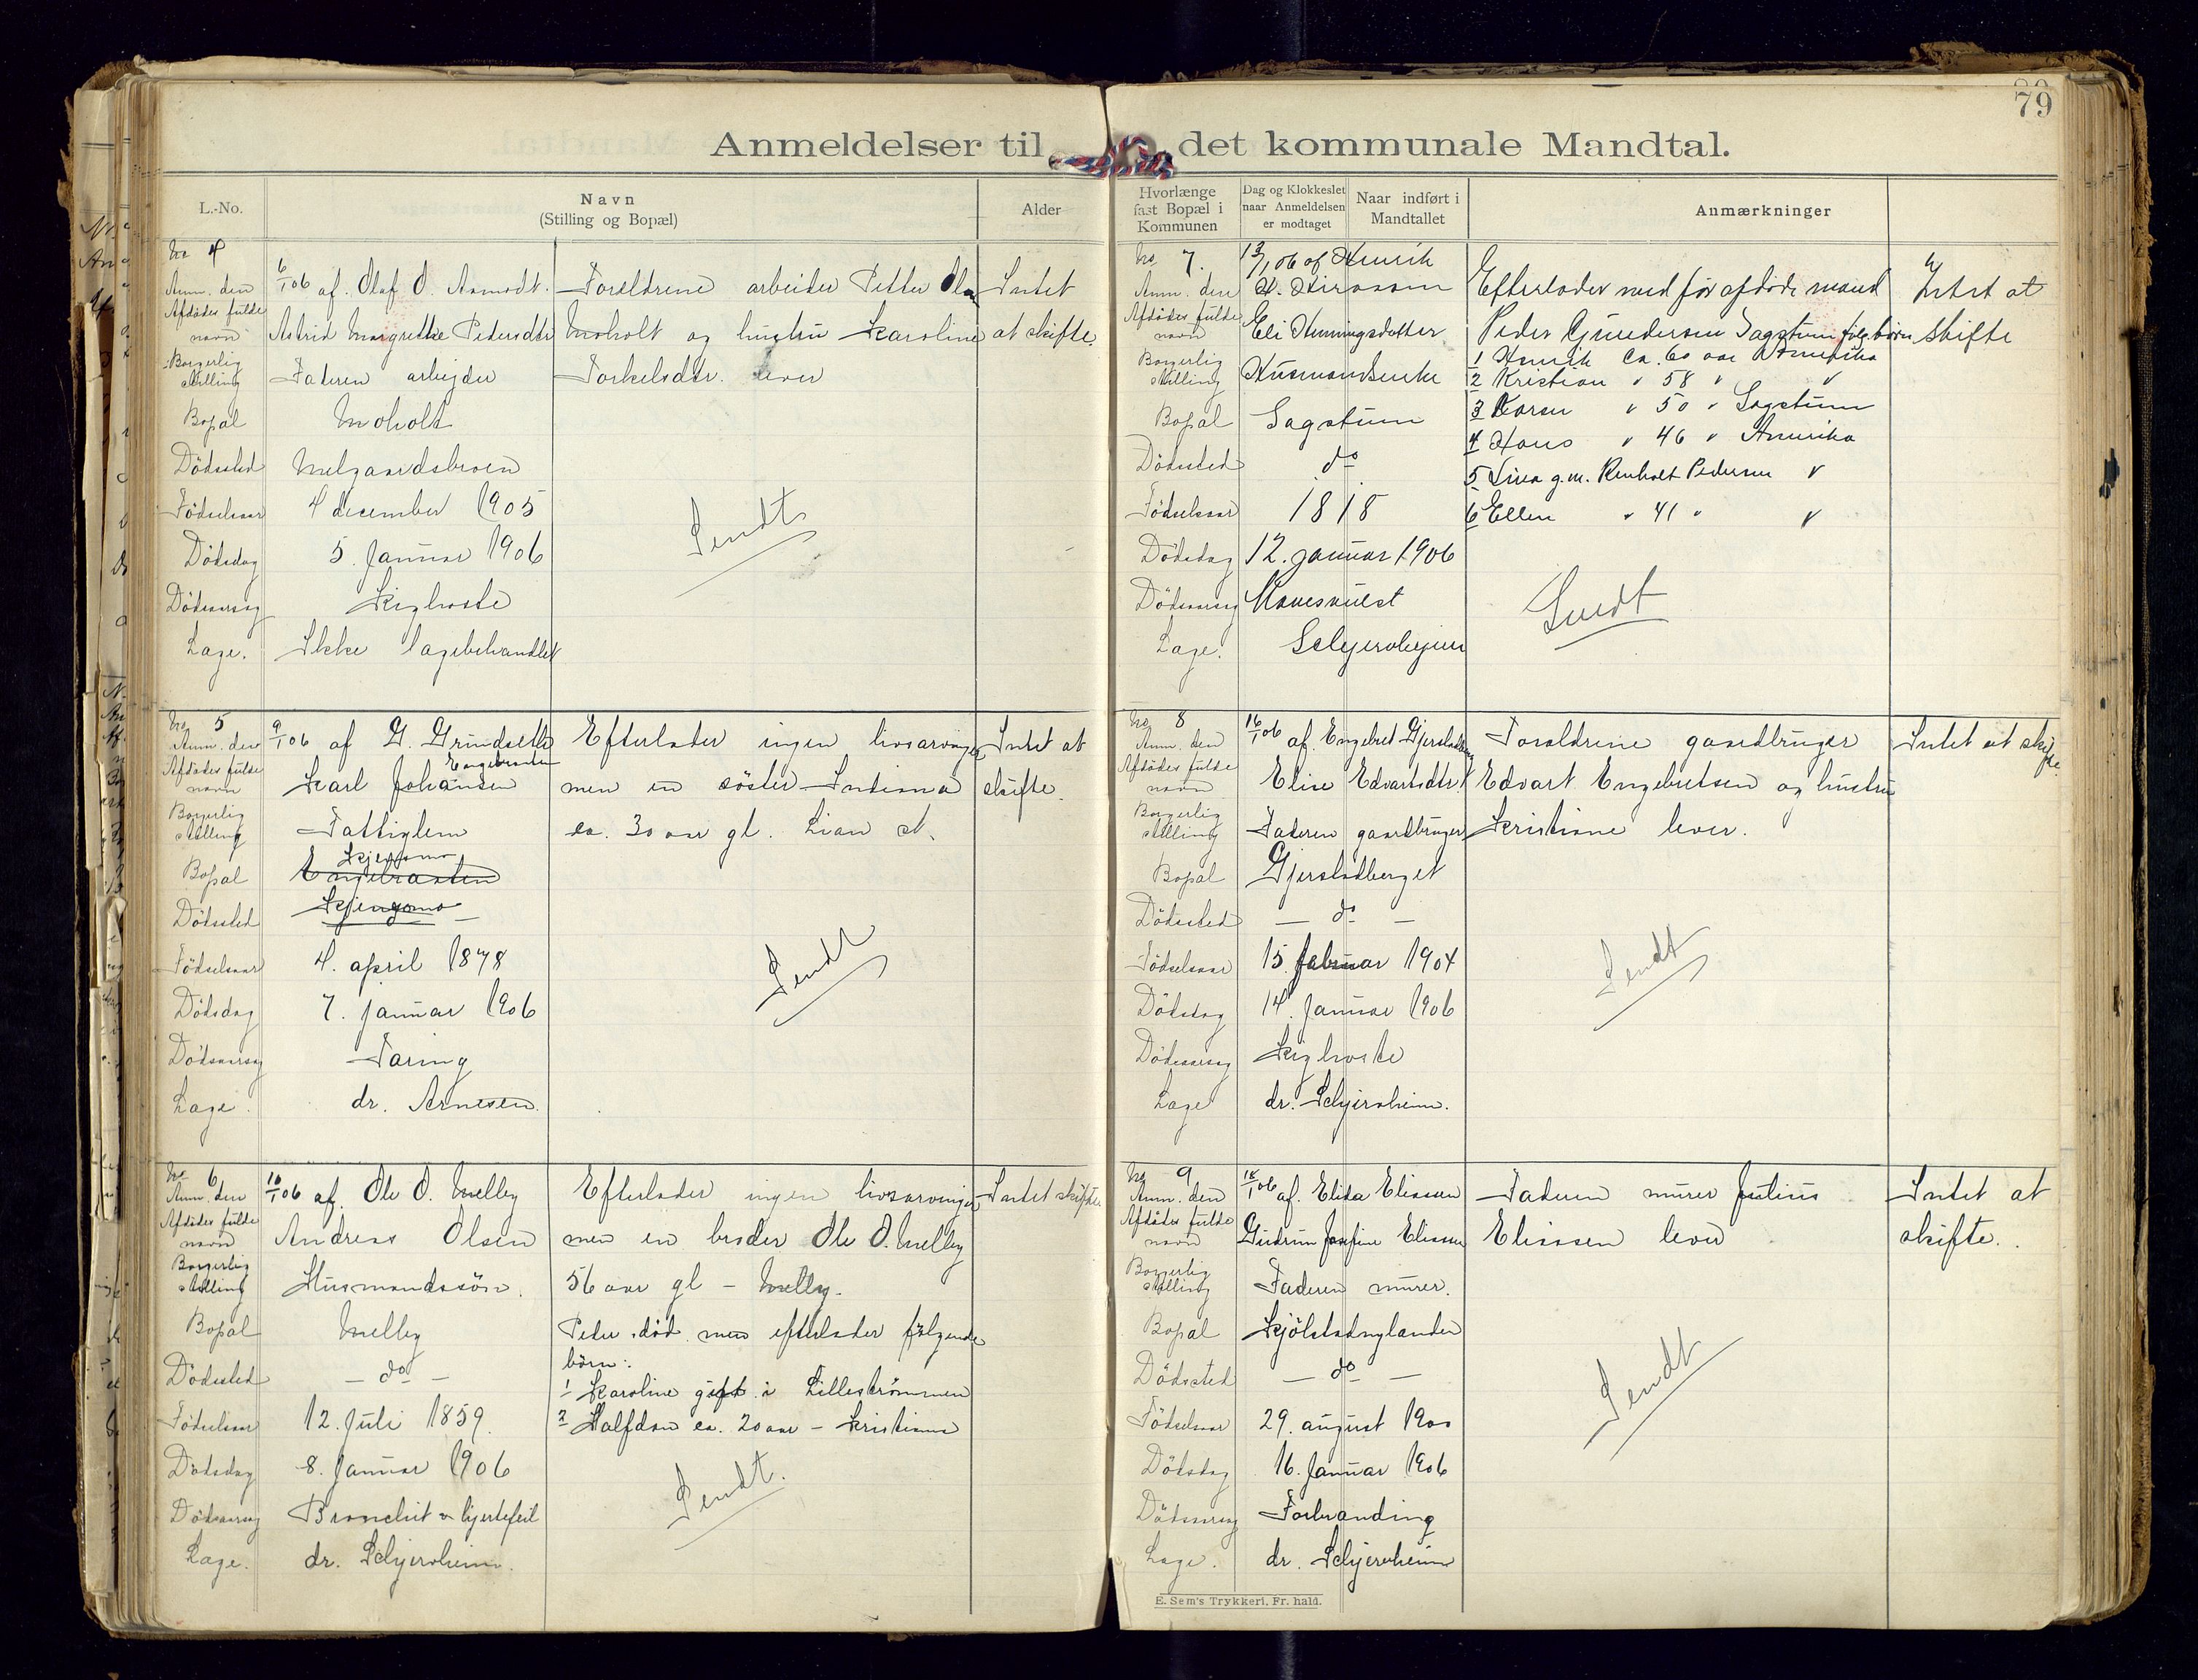 79
Anmeldelser til det kommunale Mandtal.
L.-No.
Navn
(Stilling og Bopæl)
Alder
No 4
Anm. den 6/1 06 af. Olaf O. Aamodt. Forældrene arbeider Petter Intet
Afdödes fulde navn Astrid Margrethe Pedersdtr Moholt og hustru Karoline at skifte
Borgerlig stilling Faderen arbejder Torkelsdtr. lever
Bopæl Moholt
Dödssted Melgaardsbroen
Födselsaar 4 december 1905
Sendt
Dödsdag 5. Januar 1906
Dödsaarsag Kighoste
Læge. Ikke lægebehandlet
No 5
Anm. den 9/1 06 af G. Grindsether Efterlader ingen livsarvinger Intet at
Afdödes fulde navn Karl Johansen Engebraaten men en söster skifte.
Borgerlig stilling Fattiglem ca. 30 aar gl. Lian st.
Bopæl Engebraaten Kjensmo
Dödssted Kjensmo
Födselsaar 4. april 1878
Sendt
Dödsdag 7. Januar 1906
Dödsaarsag Tæring
Læge. dr. Arnesen.
No 6
Anm. den 10/1 06 af. Ole O. Melby Efterlader ingen livsarvinger Intet skifte.
Afdödes fulde navn Andreas Olsen men en broder Ole O. Melby
Borgerlig stilling Husmandssön. 56 aar gl – Melby.
Bopæl Melby Peder död men efterlader fölgende
Dödssted — do — börn:
1 Karoline gift i Lilleströmmen
Födselsaar 12. Juli 1859. 2 Halfdan ca. 20 aar – Kristiania
Dödsdag 8. Januar 1906
Sendt.
Dödsaarsag Bronchit & hjertefeil
Læge. dr. Schjersheim.
Hvorlænge fast Bopæl i Kommunen
Dag og Klokkeslet naar Anmeldelsen er modtaget
Naar indført i Mandtallet
Anmærkninger
No 7.
Anm. den 13/1 06 af Henrik Efterlader med før afdøde mand Intet at
Afdödes fulde navn Eli Henningsdatter Peder Gundersen Sagstuen følg. børn skifte
Borgerlig stilling Husmandsenke
1 Henrik ca. 60 aar Amerika
2 Kristian " 58 " "
Bopæl Sagstuen
3 Karen " 50 " Sagstuen
4 Hans " 46 " Amerika
Dödssted do
5 Lina g.m. Renholt Pedersen "
Födselsaar 1818
6 Ellen " 41 " "
Dödsdag 12. januar 1906
Dödsaarsag
Sendt
Læge. Schjersheim
No 8
Anm. den 16/1 06 af. Engebret Forældrene gaardbruger Intet at skifte.
Afdödes fulde navn Elise Edvartsdtr. Edvart Engebretsen og hustru
Borgerlig stilling Faderen gaardbruger Kristiane lever.
Bopæl Gjerstadberget
Dödssted — do —
Födselsaar 15. februar 1904
Sendt
Dödsdag 14. Januar 1906
Dödsaarsag Kighoste
Læge dr. Schjersheim.
No 9
Anm. den 18/1 06 af. Elida Eliassen Faderen murer Julius Intet at
Afdödes fulde navn Gudrun Josefine Eliassen Eliassen lever skifte.
Borgerlig stilling Faderen murer.
Bopæl Kjölstadnylander
Dödssted — do —
Sendt
Födselsaar 29. august 1900
Dödsdag 16. Januar 1906
Dödsaarsag Forbranding
Læge. dr. Schjersheim
E. Sem's Trykkeri. Fr. hald.